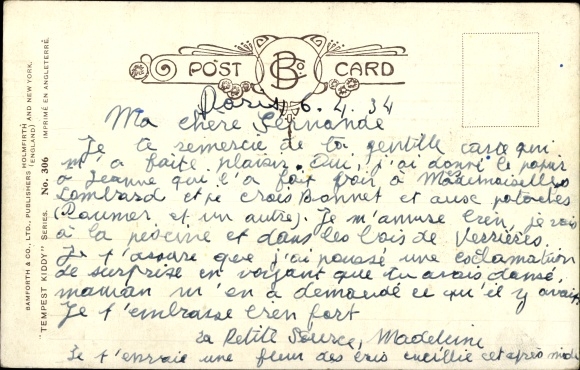 POST CARD
B Co
Paris, 6.4.34
Ma chère Fernande
Je te remercie de ta gentille carte qui
m'a faite plaisir. Oui, j'ai donné le papier
à Jeanne qui l'a fait voir à Mesdemoiselles
Lombard et je crois Bonnet et aux potaches
(Raumer, et un autre). Je m'amuse bien, je vais
à la piscine et dans les bois de Verrières.
Je t'assure que j'ai poussé une exclamation
de surprise en voyant que tu avais dansé,
maman m'en a demandé ce qu'il y avait
Je t'embrasse bien fort
ta Petite Source, Madeleine
Je t'envoie une fleur des bois cueillie cet après midi
BAMFORTH & CO., LTD., PUBLISHERS HOLMFIRTH
(ENGLAND) AND NEW YORK.
"TEMPEST KIDDY" SERIES. No. 306 IMPRIMÉ EN ANGLETERRE.